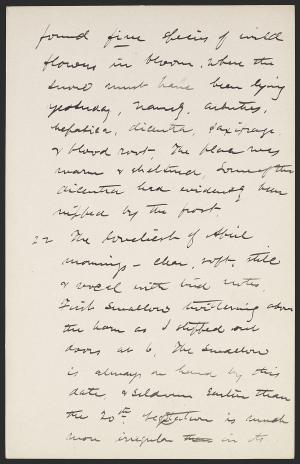 found five species of wild
flowers in bloom, where the
snow must have been lying
yesterday, namely, arbutus,
hepatica, dicentra, saxifrage
& blood root. The place was
warm & sheltered, Some of the
dicentra had evidently been
nipped by the frost.
22 The loveliest of April
mornings – clear, soft, still
& vocal with bird notes.
First swallow twittering above
the barn as I stepped out
doors at 6. The swallow
is always on hand by this
date, & seldom earlier than
the 20th. Vegetation is much
more irregular in its